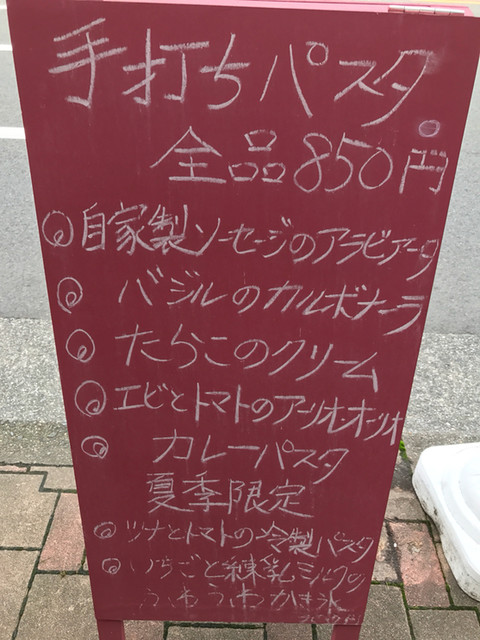 手打ちパスタ。
全品850円
◎自家製ソーセージのアラビアータ
◎バジルのカルボナーラ
◎たらこのクリーム
◎エビとトマトのアーリオオーリオ
◎カレーパスタ
夏季限定
◎ツナとトマトの冷製パスタ
◎いちごと練乳ミルクの
ふわふわかき氷